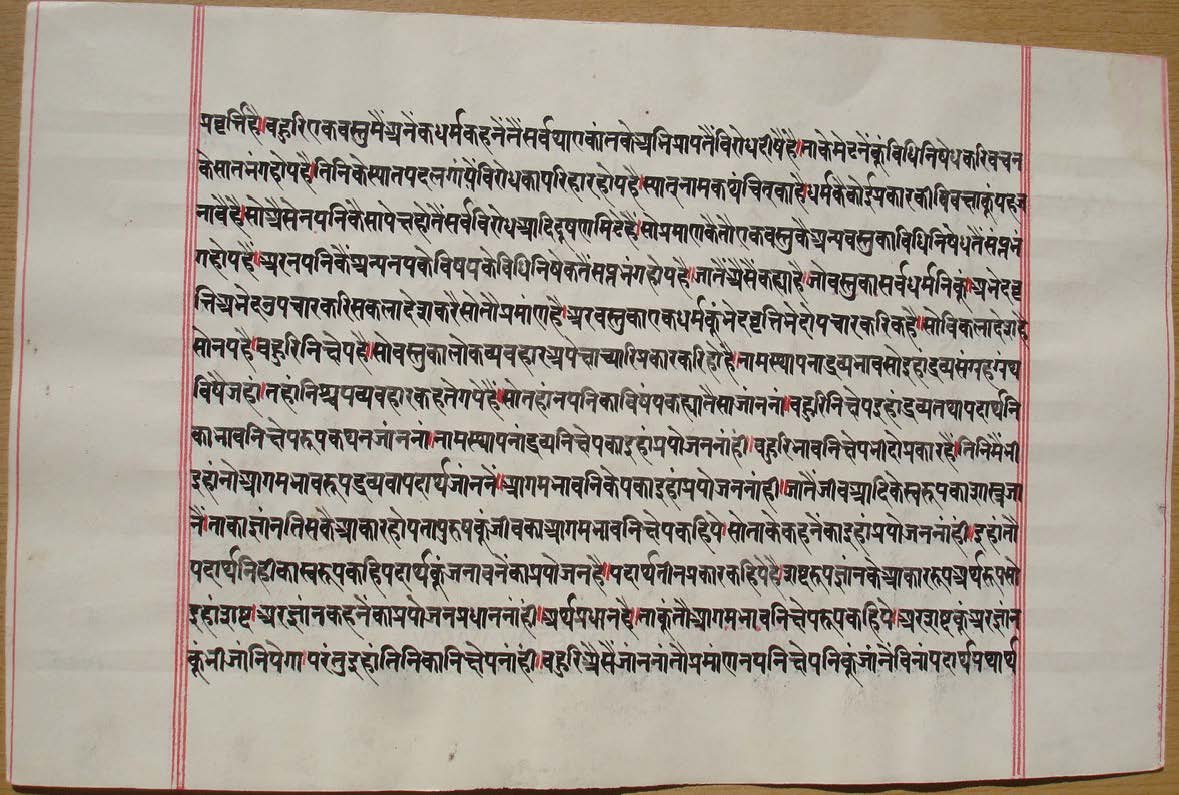 प्रवृत्ति है। बहुरि एक वस्तुमैं अनेक धर्म कहनेंतैं सर्वथा एकांतके अभिप्रायतैं विरोध दीषै है। ताके मेटनेंकूं विधिनिषेधकरि वचन
के सात भंग होय है। तिनिके स्यात् पद लगांयें विरोधका परिहार होय है। स्यात् नाम कथंचित्‌का है। धर्मकै कोई प्रकारकी विवक्षाकूं यह ज
नावै है। सो ऐसे नयनिकै सापेक्ष होतैं सर्व विरोध आदि दूषण मिटै है। सो प्रमाणकै तौ एक वस्तुकै अन्य वस्तुका विधिनिषेधतैं सप्तभं
ग होय है। अर नयनिकैं अन्य नयके विषयके विधिनिषेकतैं सप्तभंग होय है। जातैं ऐसैं कह्या है। जो वस्तुका सर्व धर्मनिकूं। अभेदवृ
त्ति अभेदउपचारकरि सकलादेश करै सो तौ प्रमांण है। अर वस्तुका एक धर्मकूं भेदवृत्ति भेदोपचारकरि कहै। सो विकलादेश है
सो नय है। बहुरि निक्षेप है। सो वस्तुका लोकव्यवहार अपेक्षा च्यारि प्रकारकरि हो है। नाम स्थापना द्रव्य भाव सो इहां द्रव्यसंग्रह ग्रंथ
विषै जहां। तहां निश्चय व्यवहार कहते गये हैं। सो तहां नयनिका विषय कह्या तैसा जांननां। बहुरि निक्षेप इहां द्रव्य तथा पदार्थनि
का भावनिक्षेपरूप कथन जांननां। नाम स्थापनां द्रव्य निक्षेपका इहां प्रयोजन नांहीं। बहुरि भावनिक्षेप भी दोय प्रकार है। तिनिमैं भी
इहां नोआगमभावरूप द्रव्य वा पदार्थ जांननैं। आगमभावनिकेपका इहां प्रयोजन नांही। जातैं जीव आदिके स्वरूपका शास्त्र जा
नैं। ताका ज्ञांन तिसकै आकार होय ता पुरुषकूं जीवका आगमभावनिक्षेप कहिये। सो ताके कहनेंका इहां प्रयोजन नांहीं। इहां तौ
पदार्थनिहीका स्वरूप कहि पदार्थकूं जनावनेंका प्रयोजन है। पदार्थ तीन प्रकार कहिये है शब्दरूप ज्ञांनके आकाररूप अर्थरूप सो
इहां शब्द। अर ज्ञांन कहनेंका प्रयोजन प्रधान नांही। अर्थ प्रधान है। ताकूं नोआगमभावनिक्षेपरूप कहिये। अर शब्दकूं अर ज्ञान
कूं भी जांनियेगा। परंतु इहां तिनिका निक्षेप नांहीं। बहुरि ऐसैं जाननां तौ प्रमांण नय निक्षेपनिकूं जांनें विनां पदार्थ यथार्थ